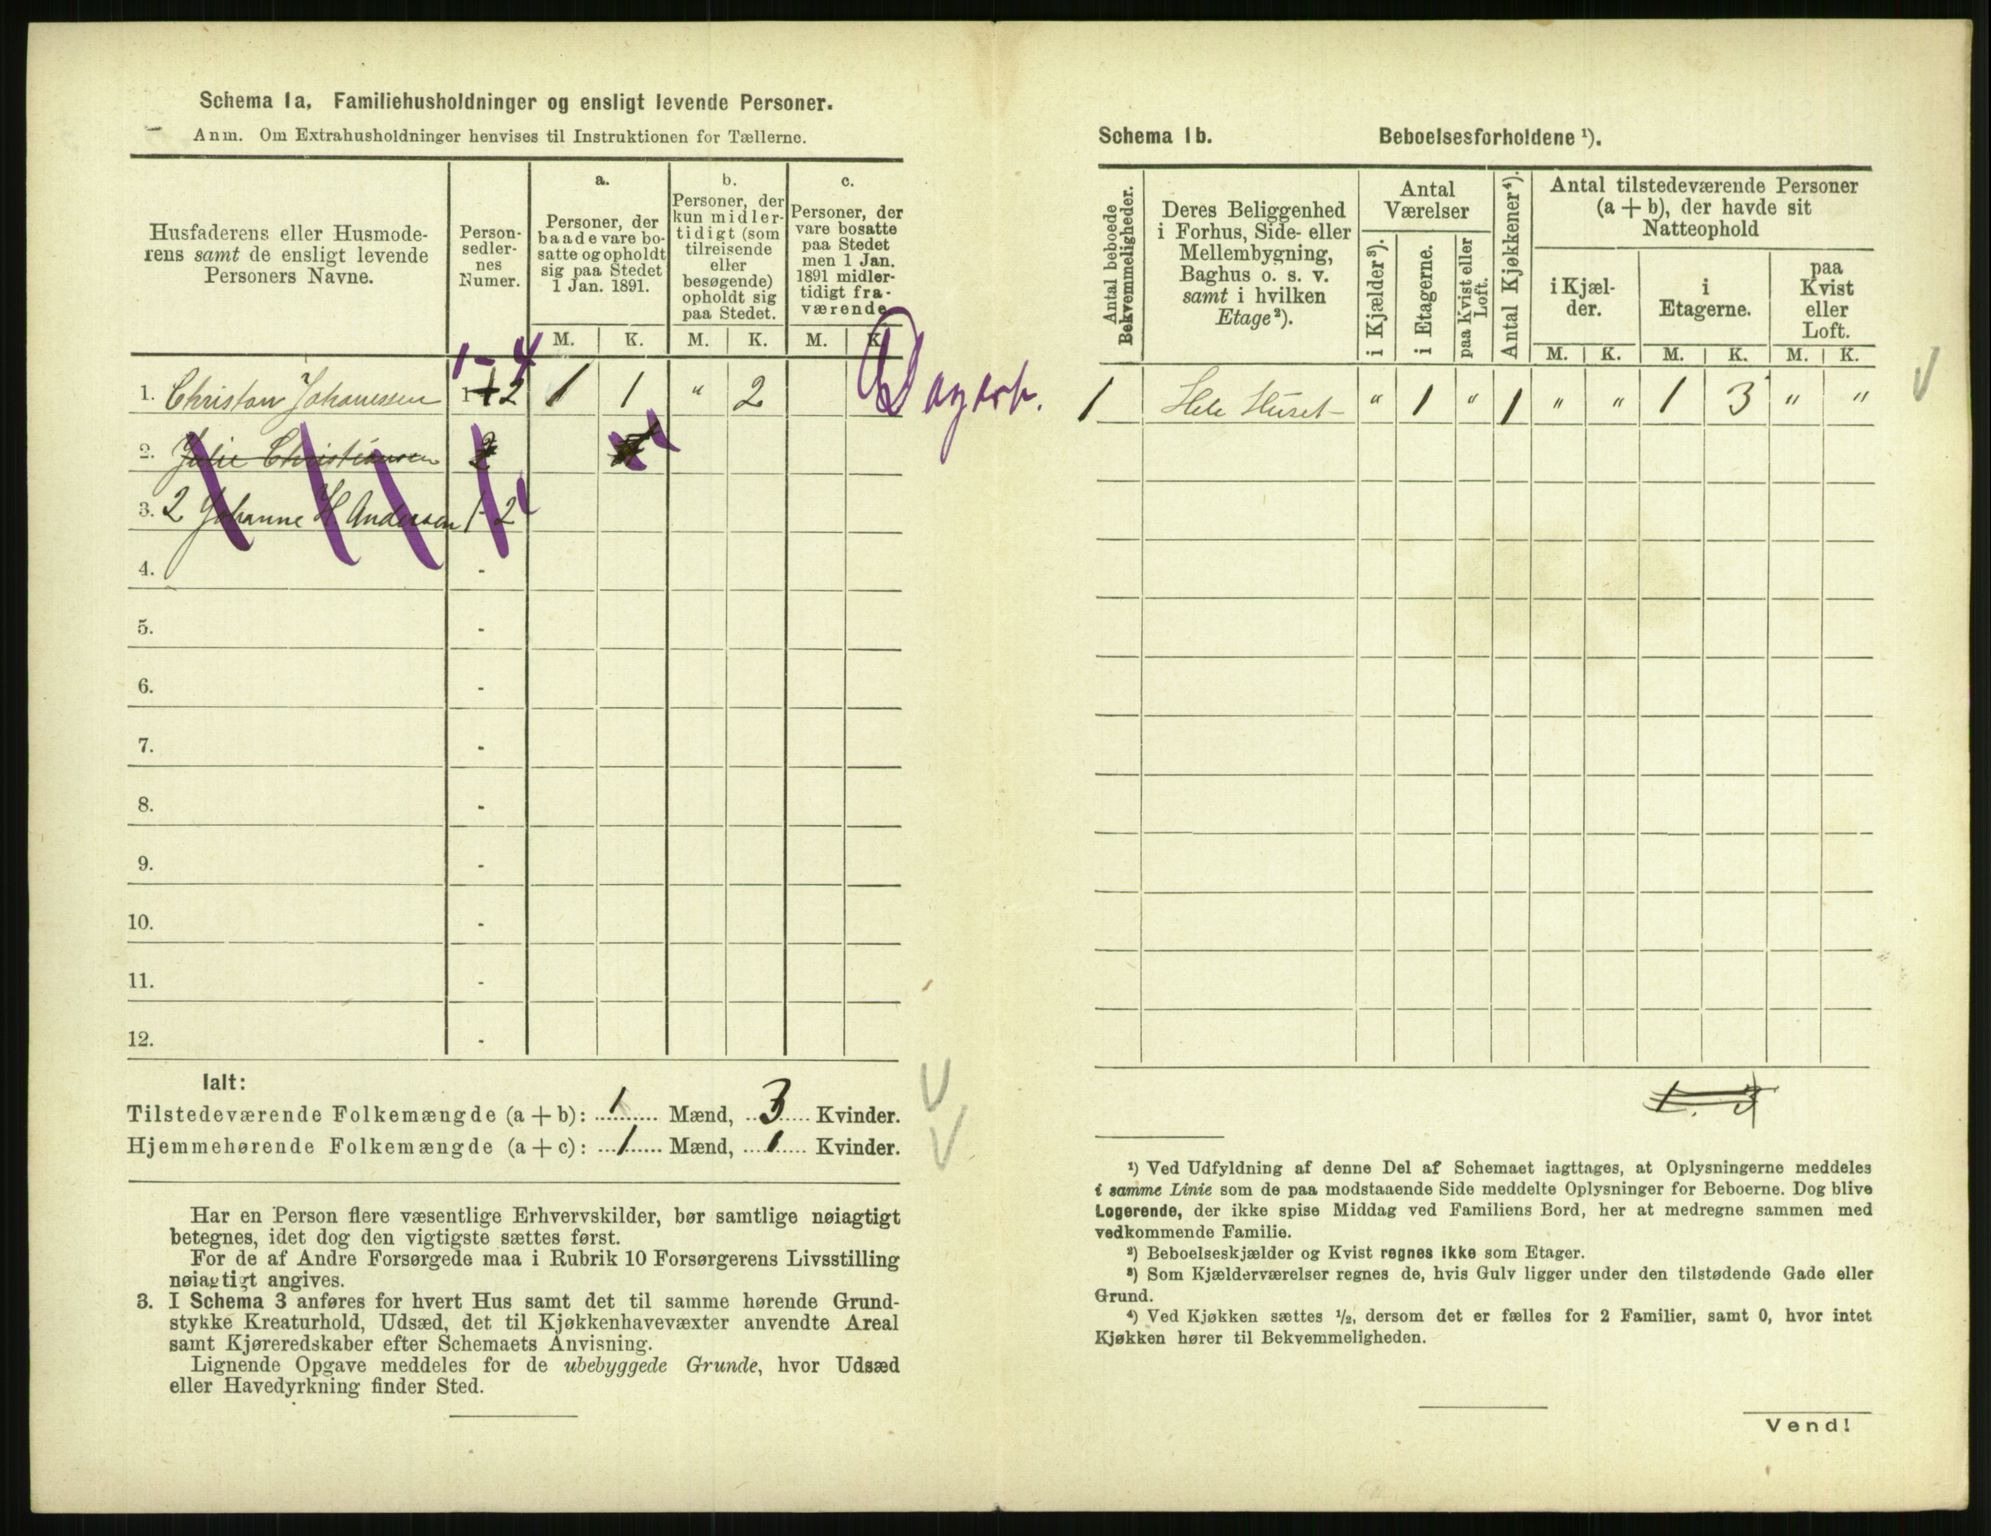 Schema 1a. Familiehusholdninger og ensligt levende Personer.
Anm. Om Extrahusholdninger henvises til Instruktionen for Tællerne.
Husfaderens eller Husmode-
rens samt de ensligt levende
Personers Navne.
Person-
sedler-
nes
Numer.
a.
Personer, der
baade vare bo-
satte og opholdt
sig paa Stedet
1 Jan. 1891.
b.
Personer, der
kun midler-
tidigt (som
tilreisende
eller
besøgende)
opholdt sig
paa Stedet.
c.
Personer, der
vare bosatte
paa Stedet
men 1 Jan.
1891 midler-
tidigt fra-
værende.
M. K. M. K. M. K.
1-4
1. Christian Johannessen 1 2 1 1 " 2
2. Julie Christiansen 2
3. 2 Johanne H. Andersen 1-2
4. -
5. -
6. -
7. -
8. -
9. -
10. -
11. -
12. -
Ialt:
Tilstedeværende Folkemængde (a + b): 1 Mænd, 3 Kvinder.
Hjemmehørende Folkemængde (a + c): 1 Mænd, 1 Kvinder.
Har en Person flere væsentlige Erhvervskilder, bør samtlige nøiagtigt
betegnes, idet dog den vigtigste sættes først.
For de af Andre Forsørgede maa i Rubrik 10 Forsørgerens Livsstilling
nøiagtigt angives.
3. I Schema 3 anføres for hvert Hus samt det til samme hørende Grund-
stykke Kreaturhold, Udsæd, det til Kjøkkenhavevæxter anvendte Areal
samt Kjøreredskaber efter Schemaets Anvisning.
Lignende Opgave meddeles for de ubebyggede Grunde, hvor Udsæd
eller Havedyrkning finder Sted.
Schema 1b. Beboelsesforholdene ¹).
Antal beboede
Bekvemmeligheder.
Deres Beliggenhed
i Forhus, Side- eller
Mellembygning,
Baghus o. s. v.
samt i hvilken
Etage²).
Antal
Værelser
i Kjælder³).
i Etagerne.
paa Kvist eller
Loft.
Antal Kjøkkener⁴).
Antal tilstedeværende Personer
(a + b), der havde sit
Natteophold
i Kjæl-
der.
i
Etagerne.
paa
Kvist
eller
Loft.
M. K. M. K. M. K.
1 Hele Huset " 1 " 1 " " 1 3 " "
1. 3
¹) Ved Udfyldning af denne Del af Schemaet iagttages, at Oplysningerne meddeles
i samme Linie som de paa modstaaende Side meddelte Oplysninger for Beboerne. Dog blive
Logerende, der ikke spise Middag ved Familiens Bord, her at medregne sammen med
vedkommende Familie.
²) Beboelseskjælder og Kvist regnes ikke som Etager.
³) Som Kjælderværelser regnes de, hvis Gulv ligger under den tilstødende Gade eller
Grund.
⁴) Ved Kjøkken sættes ½, dersom det er fælles for 2 Familier, samt 0, hvor intet
Kjøkken hører til Bekvemmeligheden.
Vend!